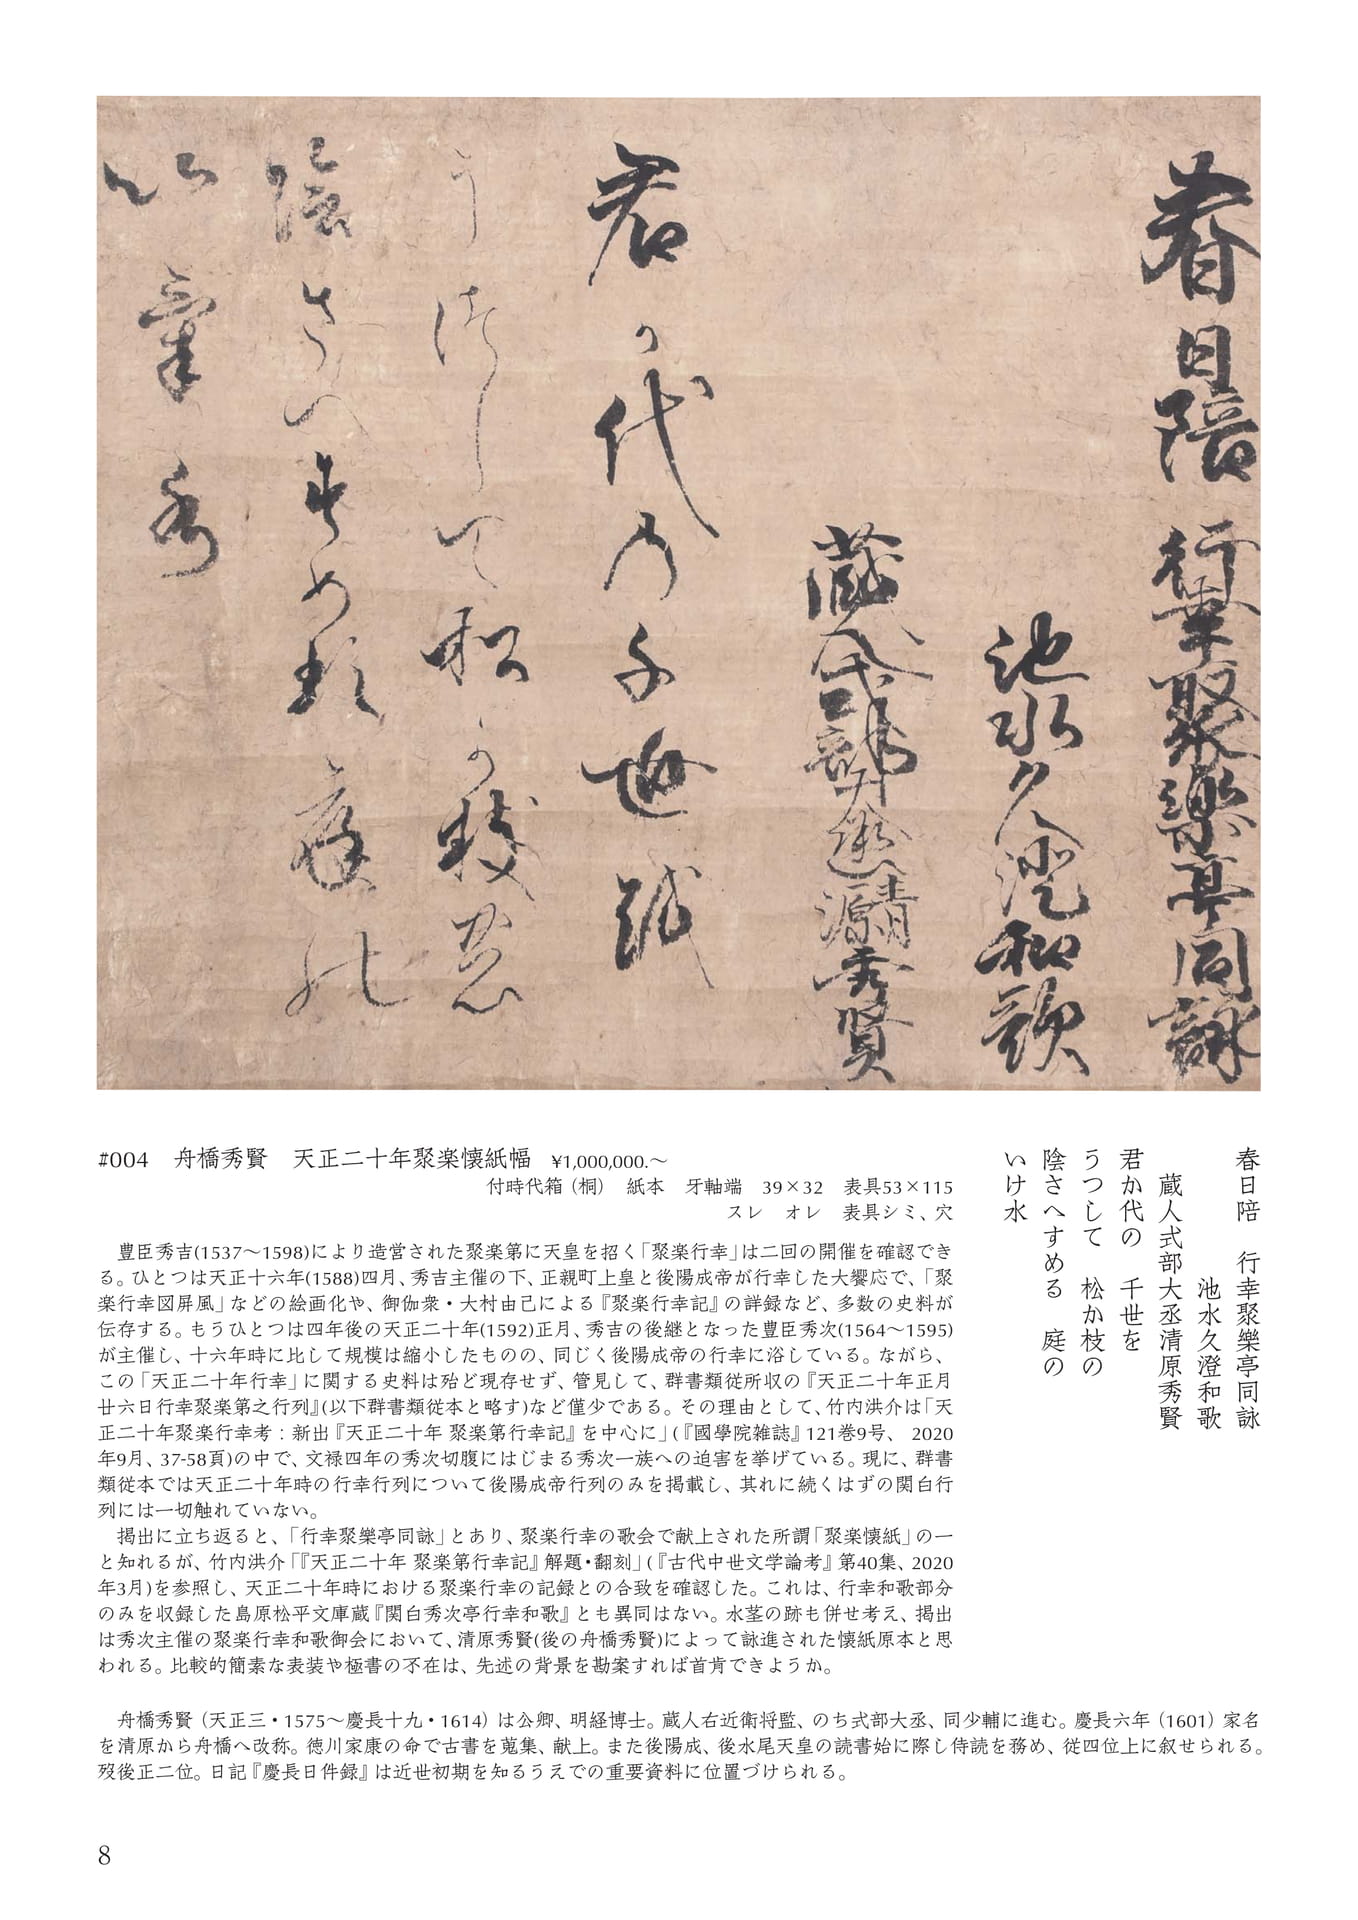 春日陪 行幸聚樂亭同詠
池水久澄和歌
蔵人式部大丞清原秀賢
君か代乃千世越
うつして松か枝の
陰さへすめる庭の
以氣水
春日陪 行幸聚樂亭同詠
池水久澄和歌
蔵人式部大丞清原秀賢
君か代の 千世を
うつして 松か枝の
陰さへすめる 庭の
いけ水
#004 舟橋秀賢 天正二十年聚楽懐紙幅 ¥1,000,000.～
付時代箱（桐） 紙本 牙軸端 39×32 表具53×115
スレ オレ 表具シミ、穴
豊臣秀吉(1537～1598)により造営された聚楽第に天皇を招く「聚楽行幸」は二回の開催を確認でき
る。ひとつは天正十六年(1588)四月、秀吉主催の下、正親町上皇と後陽成帝が行幸した大饗応で、「聚
楽行幸図屏風」などの絵画化や、御伽衆・大村由己による『聚楽行幸記』の詳録など、多数の史料が
伝存する。もうひとつは四年後の天正二十年(1592)正月、秀吉の後継となった豊臣秀次(1564～1595)
が主催し、十六年時に比して規模は縮小したものの、同じく後陽成帝の行幸に浴している。ながら、
この「天正二十年行幸」に関する史料は殆ど現存せず、管見して、群書類従所収の『天正二十年正月
廿六日行幸聚楽第之行列』(以下群書類従本と略す)など僅少である。その理由として、竹内洪介は「天
正二十年聚楽行幸考：新出『天正二十年 聚楽第行幸記』を中心に」(『國學院雑誌』121巻9号、 2020
年9月、37-58頁)の中で、文禄四年の秀次切腹にはじまる秀次一族への迫害を挙げている。現に、群書
類従本では天正二十年時の行幸行列について後陽成帝行列のみを掲載し、其れに続くはずの関白行
列には一切触れていない。
掲出に立ち返ると、「行幸聚樂亭同詠」とあり、聚楽行幸の歌会で献上された所謂「聚楽懐紙」の一
と知れるが、竹内洪介「『天正二十年 聚楽第行幸記』解題・翻刻」(『古代中世文学論考』第40集、2020
年3月)を参照し、天正二十年時における聚楽行幸の記録との合致を確認した。これは、行幸和歌部分
のみを収録した島原松平文庫蔵『関白秀次亭行幸和歌』とも異同はない。水茎の跡も併せ考え、掲出
は秀次主催の聚楽行幸和歌御会において、清原秀賢(後の舟橋秀賢)によって詠進された懐紙原本と思
われる。比較的簡素な表装や極書の不在は、先述の背景を勘案すれば首肯できようか。
舟橋秀賢（天正三・1575～慶長十九・1614）は公卿、明経博士。蔵人右近衛将監、のち式部大丞、同少輔に進む。慶長六年（1601）家名
を清原から舟橋へ改称。徳川家康の命で古書を蒐集、献上。また後陽成、後水尾天皇の読書始に際し侍読を務め、従四位上に叙せられる。
歿後正二位。日記『慶長日件録』は近世初期を知るうえでの重要資料に位置づけられる。
8